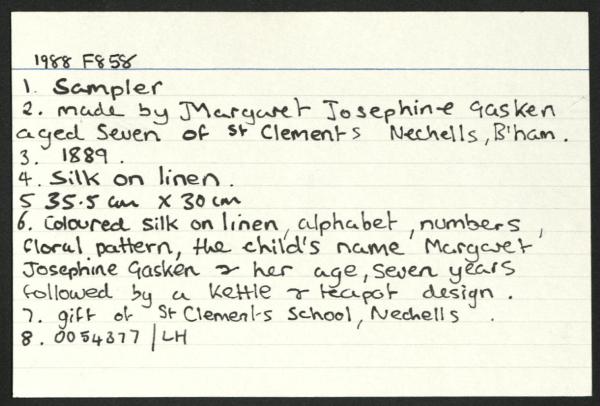 1988 F858
1. Sampler
2. made by Margaret Josephine Gasken
aged Seven of St Clements Nechells, B'ham.
3. 1889.
4. Silk on linen.
5 35.5 cm x 30 cm
6. Coloured silk on linen, alphabet, numbers,
floral pattern, the child's name Margaret
Josephine Gasken & her age, seven years
followed by a kettle & teapot design.
7. gift of St Clements School, Nechells.
8. 0054377 | LH